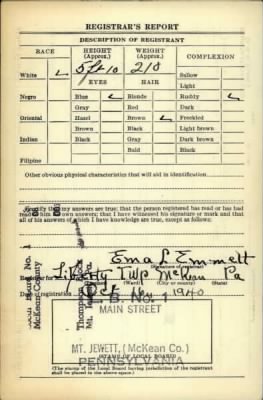 REGISTRAR'S REPORT
DESCRIPTION OF REGISTRANT
RACE HEIGHT (Approx.) WEIGHT (Approx.) COMPLEXION
5 ft 10 210
White Sallow
EYES HAIR Light
Negro Blue Blonde Ruddy
Gray Red Dark
Oriental Hazel Brown Freckled
Brown Black Light brown
Indian Black Gray Dark brown
Bald Black
Filipino
Other obvious physical characteristics that will aid in identification
I certify that my answers are true; that the person registered has read or has had
read to him his own answers; that I have witnessed his signature or mark and that
all of his answers of which I have knowledge are true, except as follows:
Emmett
(Signature of registrar)
Registrar for Liberty Twp McKean Pa
(City or county) (State)
Date of registration Oct 1940
No. 1
McKean County
MAIN STREET
MT. JEWETT, (McKean Co.)
PENNSYLVANIA
(STAMP OF LOCAL BOARD)
(The stamp of the Local Board having jurisdiction of the registrant
shall be placed in the above space.)